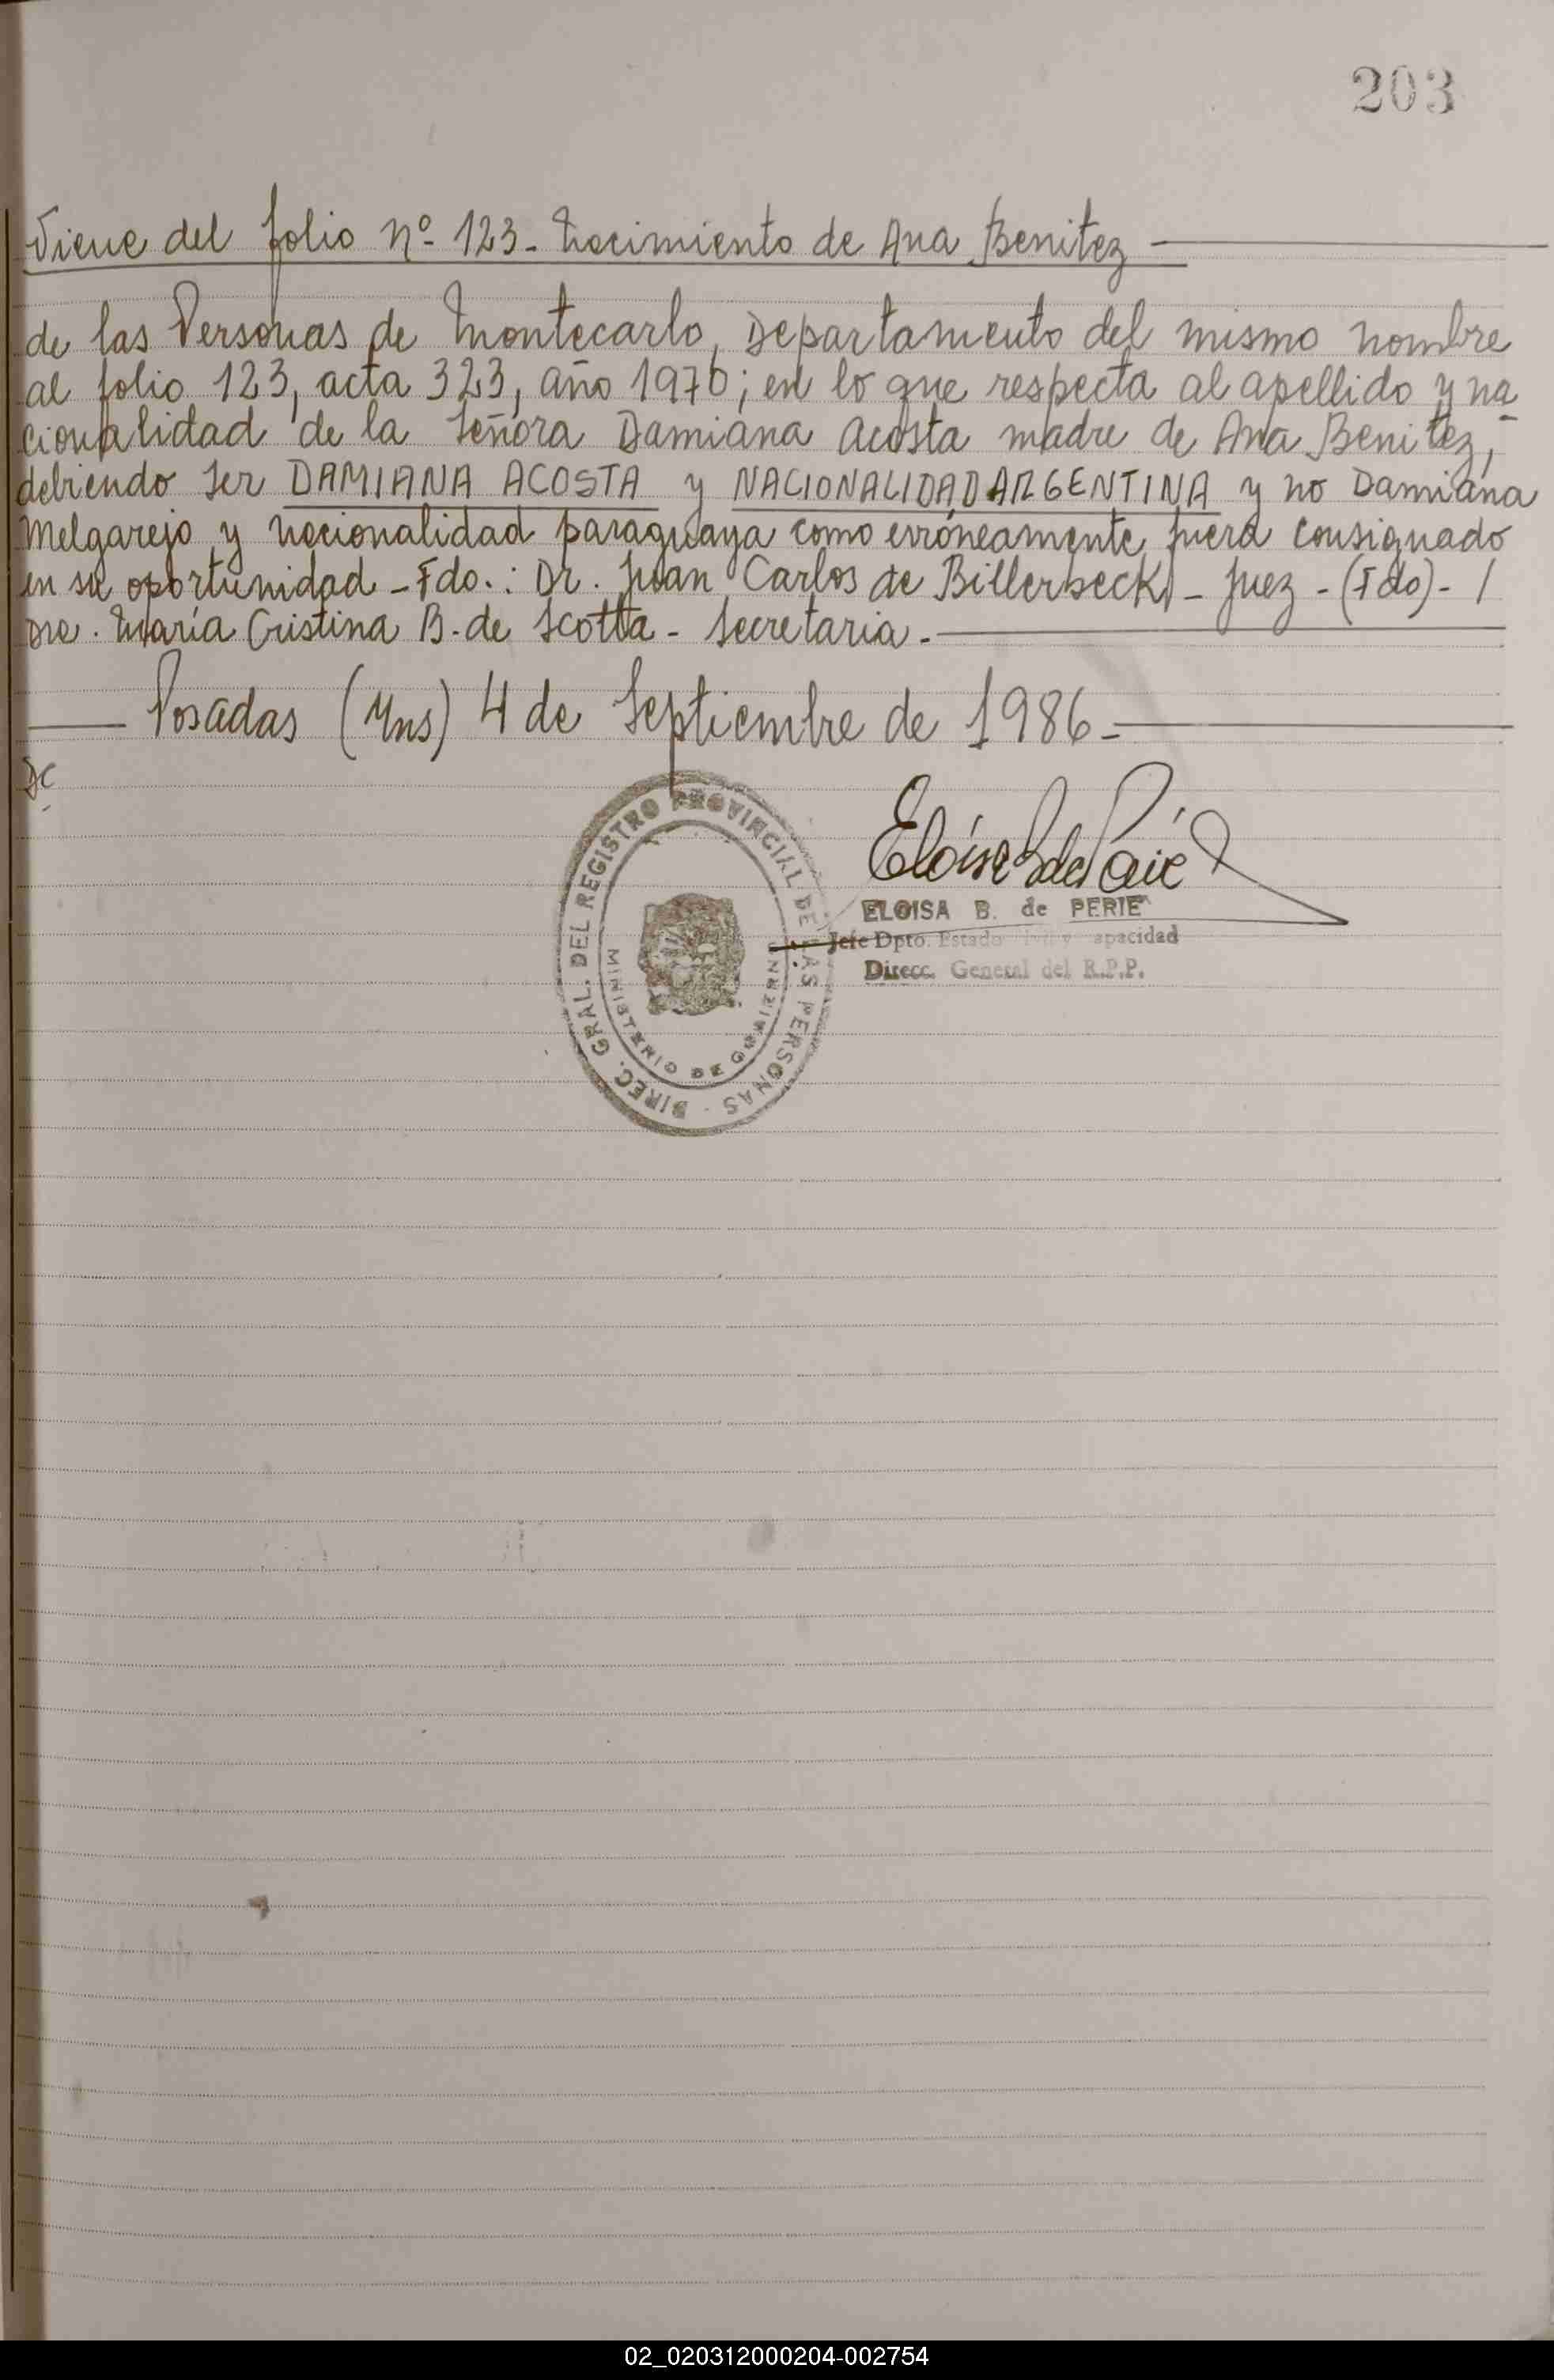 203
Viene del folio Nº 123 - Nacimiento de Ana Benitez
de las Personas de Montecarlo, Departamento del mismo nombre
al folio 123, acta 323, año 1970; en lo que respecta al apellido y na
cionalidad de la Señora Damiana Acosta madre de Ana Benitez,
debiendo ser DAMIANA ACOSTA y NACIONALIDAD ARGENTINA y no Damiana
Melgarejo y nacionalidad paraguaya como erróneamente fuera consignado
en su oportunidad - Fdo.: Dr. Juan Carlos de Billerbeck - Juez - (Fdo) - /
Dra. María Cristina B. de Scotta - Secretaria.
Posadas (Mns) 4 de Septiembre de 1986 -
DC
DIREC. GRAL. DEL REGISTRO PROVINCIAL DE LAS PERSONAS
MINISTERIO DE GOBIERNO
ELOISA B. de PERIE
Jefe Dpto. Estado Civil y Capacidad
Direcc. General del R.P.P.
02_020312000204-002754